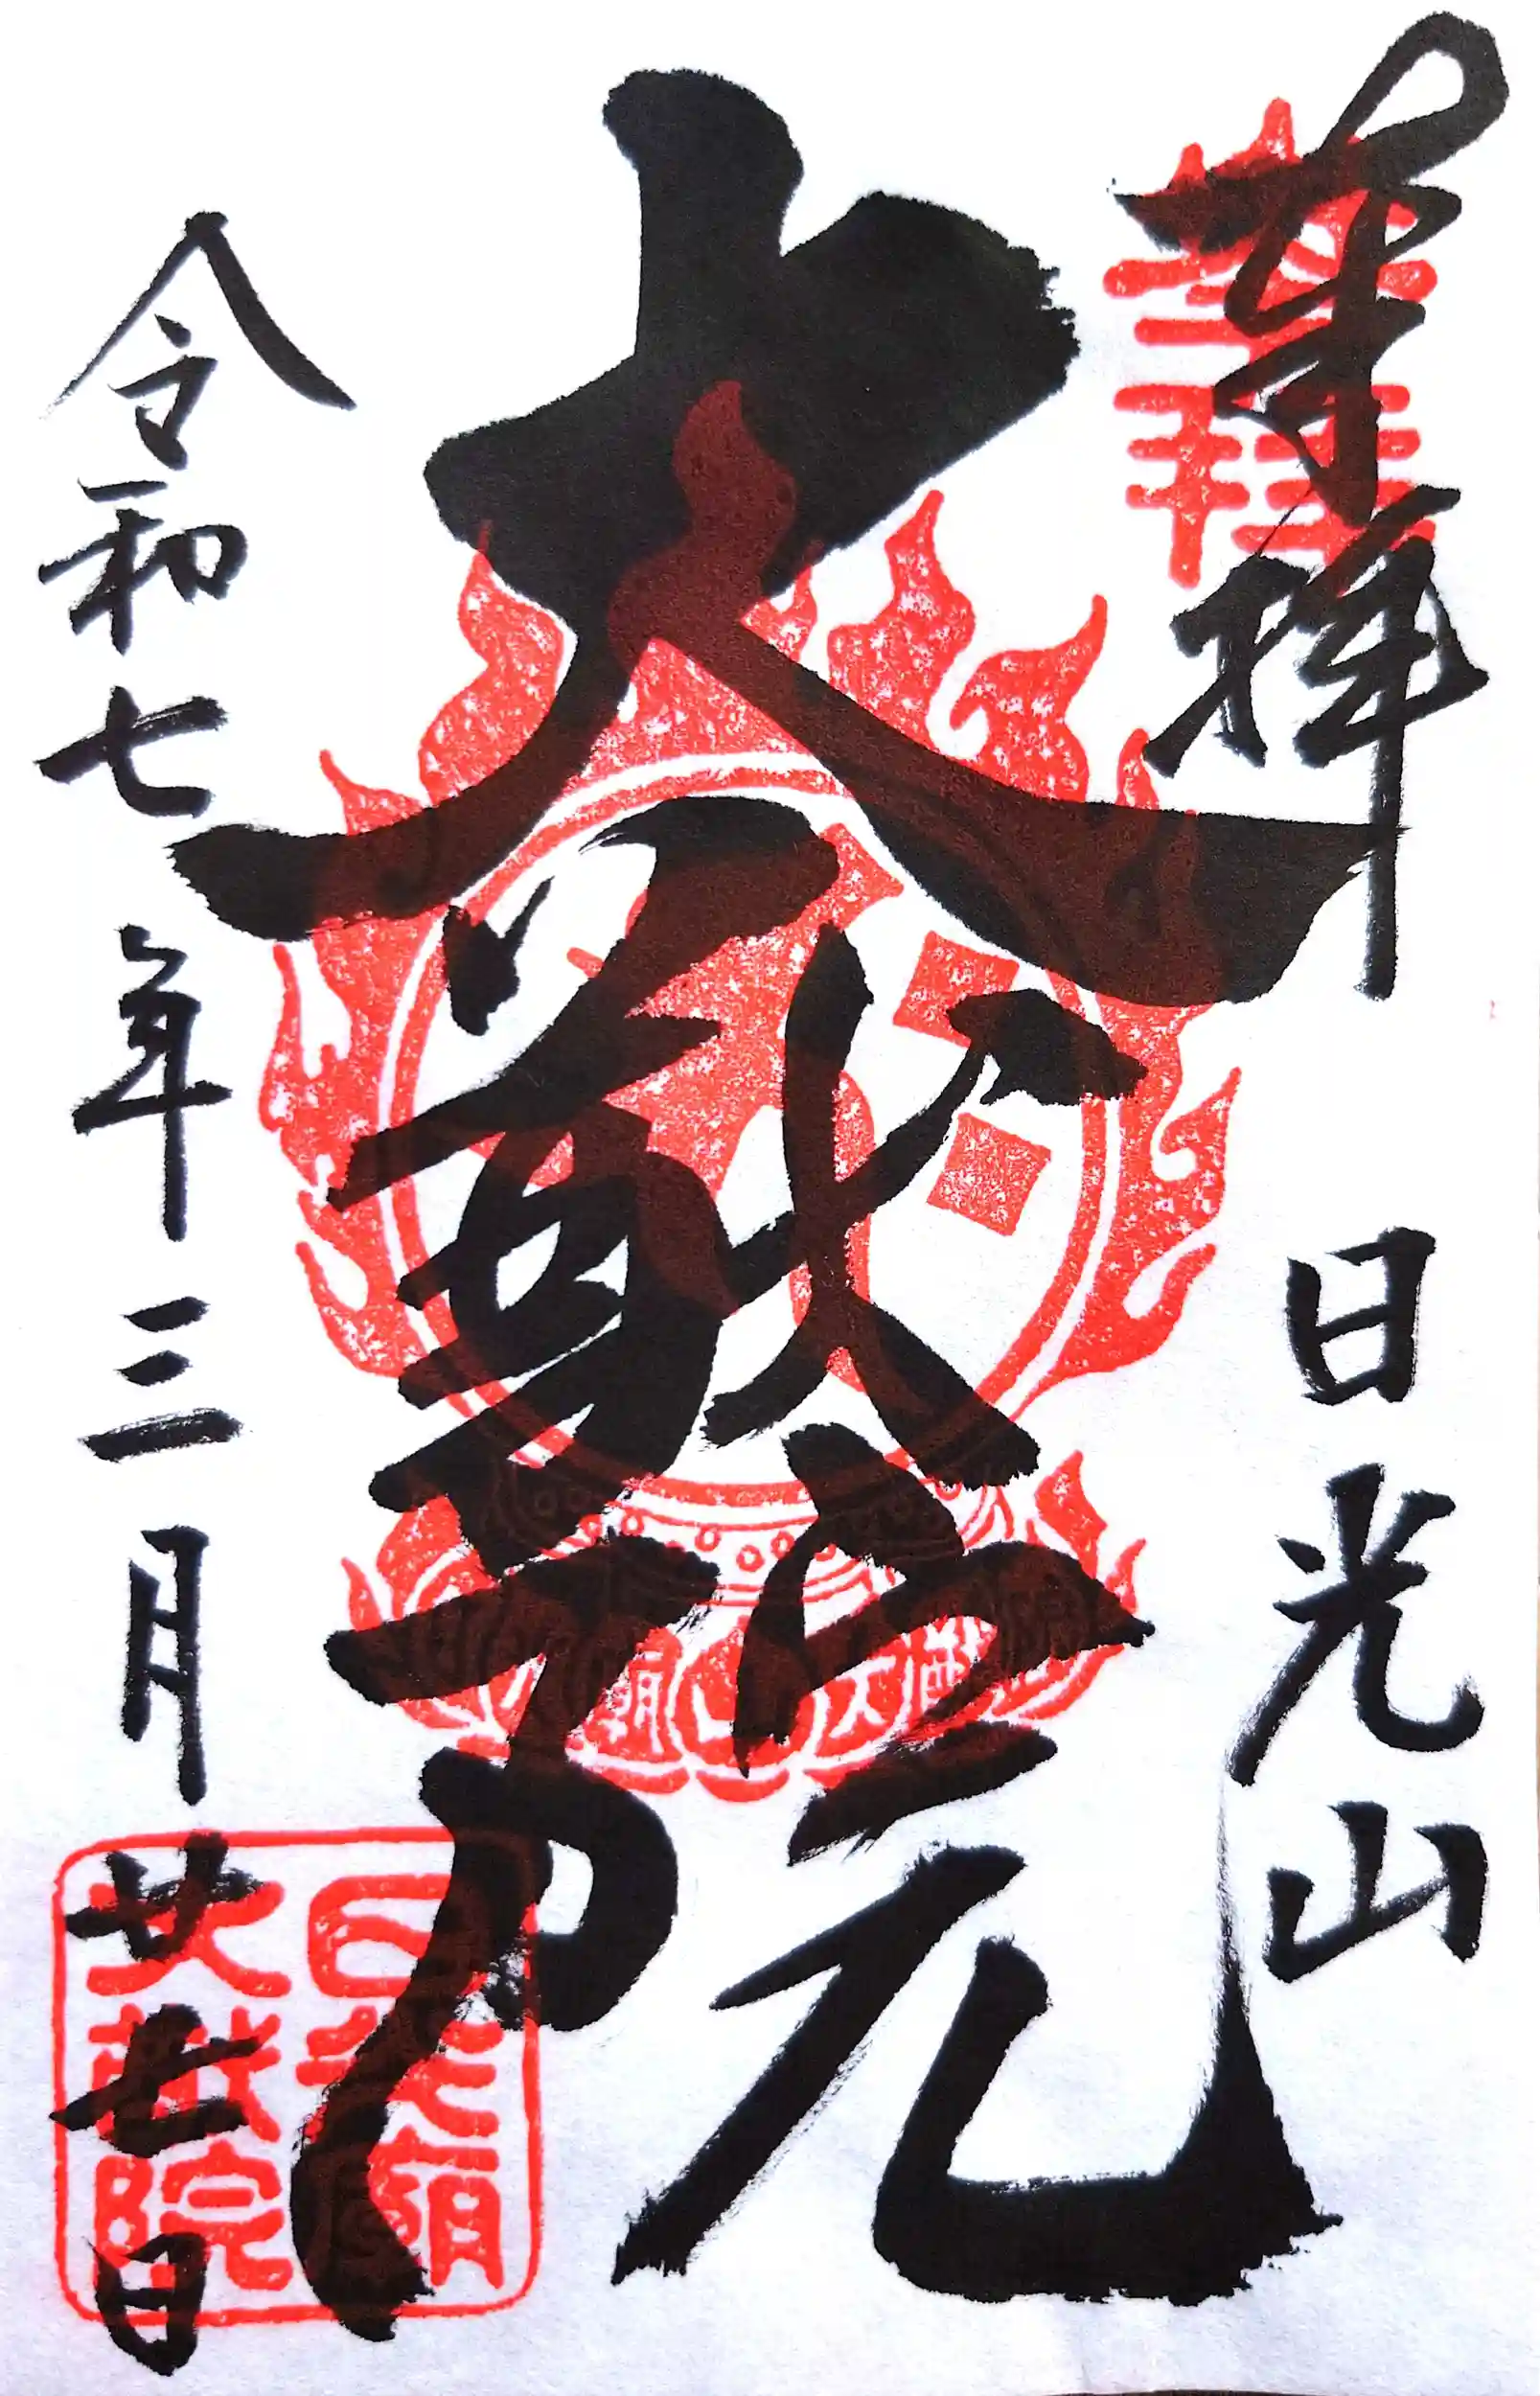 奉拝
日光山
大猷院
令和七年三月廿七日
日光廟
大猷院